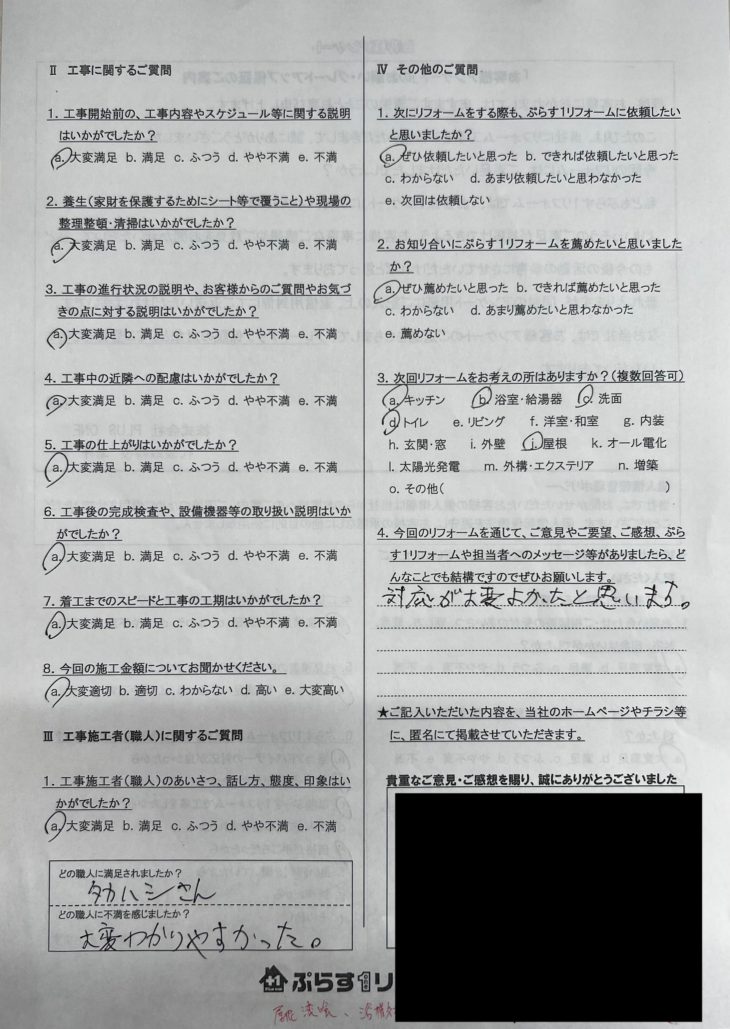 Ⅱ 工事に関するご質問
1. 工事開始前の、工事内容やスケジュール等に関する説
明はいかがでしたか?
a. 大変満足 b. 満足 c. ふつう d. やや不満 e. 不満
2. 養生(家財を保護するためにシート等で覆うこと)や現場の
整理整頓・清掃はいかがでしたか?
a. 大変満足 b. 満足 c. ふつう d. やや不満 e. 不満
3. 工事の進行状況の説明や、お客様からのご質問やお気づ
きの点に対する説明はいかがでしたか?
a. 大変満足 b. 満足 c. ふつう d. やや不満 e. 不満
4. 工事中の近隣への配慮はいかがでしたか?
a. 大変満足 b. 満足 c. ふつう d. やや不満 e. 不満
5. 工事の仕上がりはいかがでしたか?
a. 大変満足 b. 満足 c. ふつう d. やや不満 e. 不満
6. 工事後の完成検査や、設備機器等の取り扱い説明はいか
がでしたか?
a. 大変満足 b. 満足 c. ふつう d. やや不満 e. 不満
7. 着工までのスピードと工事の工期はいかがでしたか?
a. 大変満足 b. 満足 c. ふつう d. やや不満 e. 不満
8. 今回の施工金額についてお聞かせください。
a. 大変適切 b. 適切 c. わからない d. 高い e. 大変高い
Ⅲ 工事施工者(職人)に関するご質問
1. 工事施工者(職人)のあいさつ、話し方、態度、印象はい
かがでしたか?
a. 大変満足 b. 満足 c. ふつう d. やや不満 e. 不満
どの職人に満足されましたか?
タカハシさん
どの職人に不満を感じましたか?
大変わかりやすかった。
Ⅳ その他のご質問
1. 次にリフォームをする際も、ぷらす1リフォームに依頼したい
と思いましたか?
a. ぜひ依頼したいと思った b. できれば依頼したいと思った
c. わからない d. あまり依頼したいと思わなかった
e. 次回は依頼しない
2. お知り合いにぷらす1リフォームを薦めたいと思いました
か?
a. ぜひ薦めたいと思った b. できれば薦めたいと思った
c. わからない d. あまり薦めたいと思わなかった
e. 薦めない
3. 次回リフォームをお考えの所はありますか?(複数回答可)
a. キッチン b. 浴室・給湯器 c. 洗面
d. トイレ e. リビング f. 洋室・和室 g. 内装
h. 玄関・窓 i. 外壁 j. 屋根 k. オール電化
l. 太陽光発電 m. 外構・エクステリア n. 増築
o. その他( )
4. 今回のリフォームを通じて、ご意見やご要望、ご感想、ぷら
す1リフォームや担当者へのメッセージ等がありましたら、ど
んなことでも結構ですのでぜひお願いします。
対応が大変よかったと思います。
★ご記入いただいた内容を、当社のホームページやチラシ等
に、匿名にて掲載させていただきます。
貴重なご意見・ご感想を賜り、誠にありがとうございました
+1 ぷらす1リ